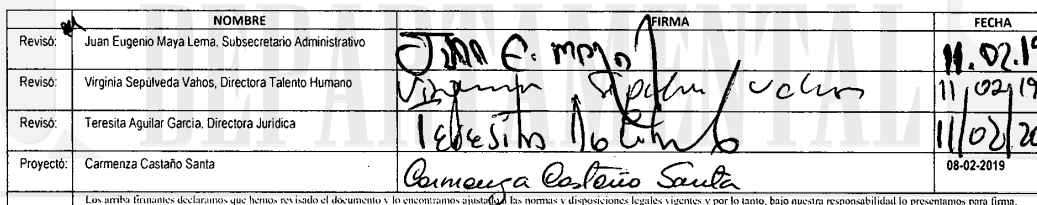 DEPARTAMENTAL
NOMBRE FIRMA FECHA
Revisó: Juan Eugenio Maya Lema, Subsecretario Administrativo Juan E. Maya 11.02.19
Revisó: Virginia Sepúlveda Vahos, Directora Talento Humano Virginia Vahos 11/02/19
Revisó: Teresita Aguilar García, Directora Jurídica Teresita 11/02/20
Proyectó: Carmenza Castaño Santa Carmenza Castaño Santa 08-02-2019
Los arriba firmantes declaramos que hemos revisado el documento y lo encontramos ajustado a las normas y disposiciones legales vigentes y por lo tanto, bajo nuestra responsabilidad lo presentamos para firma.